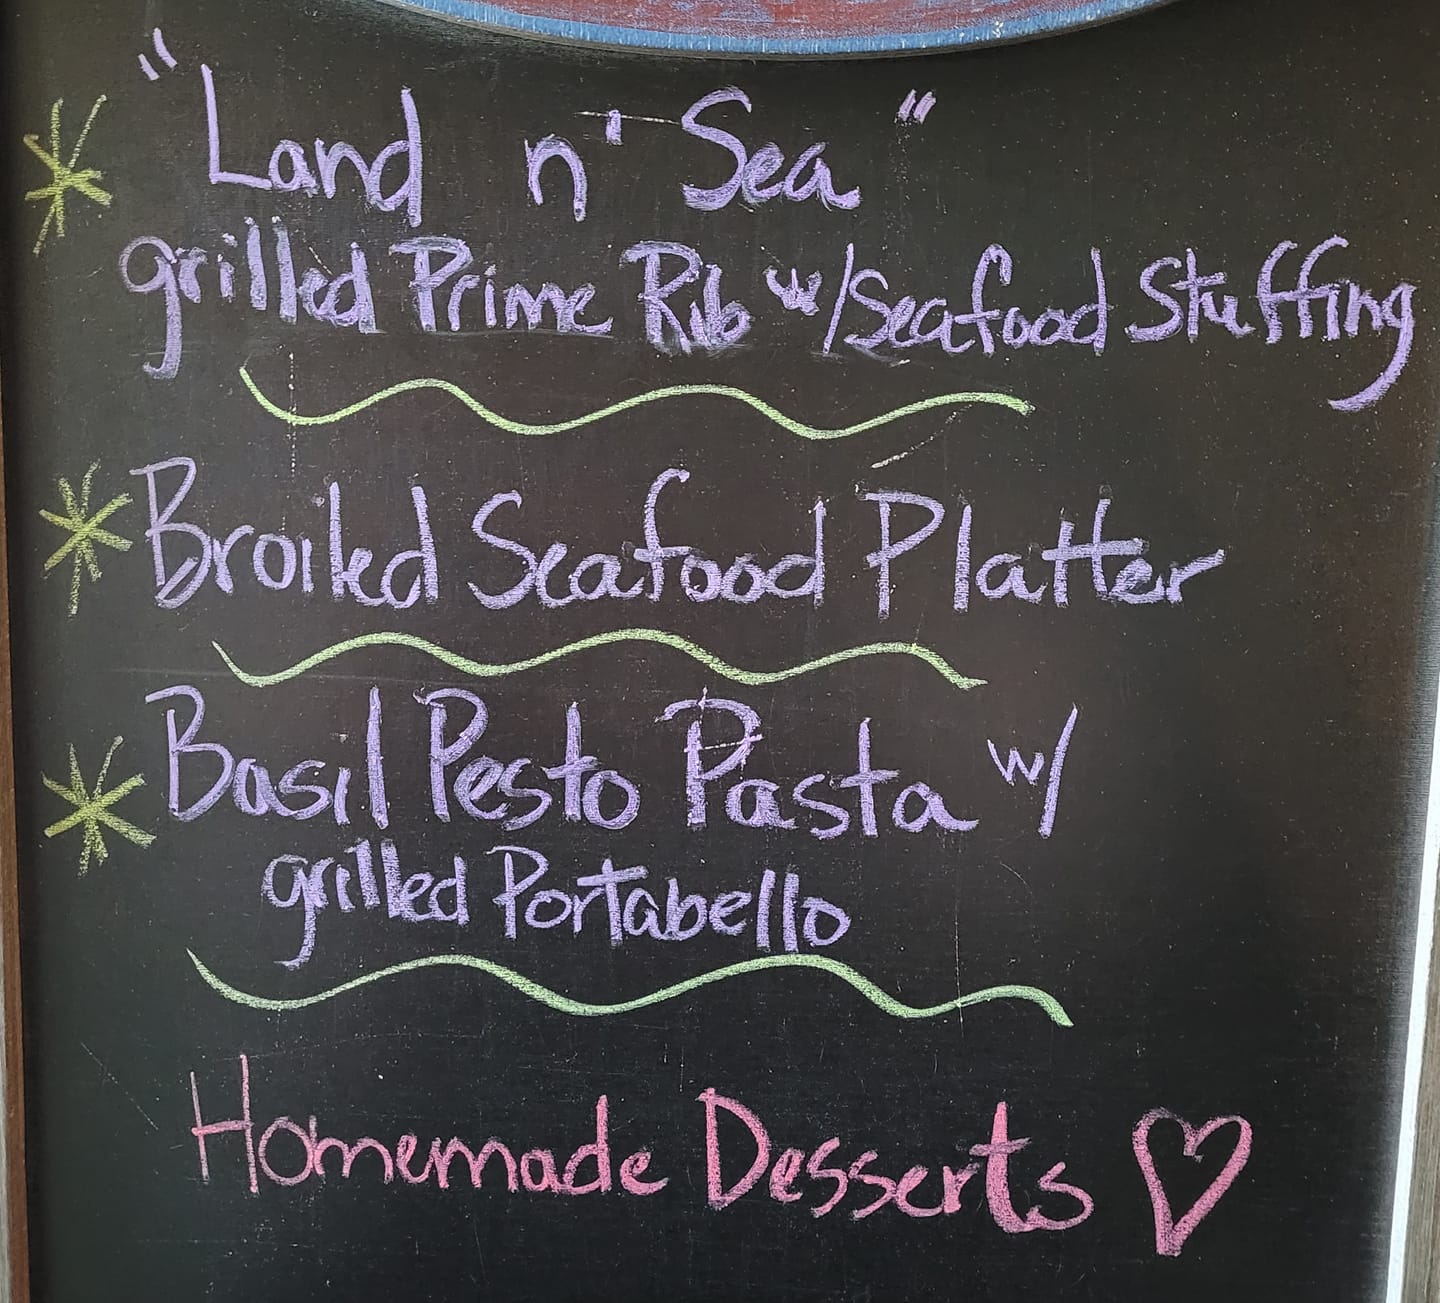 "Land n' Sea"
grilled Prime Rib w/Seafood Stuffing
Broiled Seafood Platter
Basil Pesto Pasta w/
grilled Portabello
Homemade Desserts